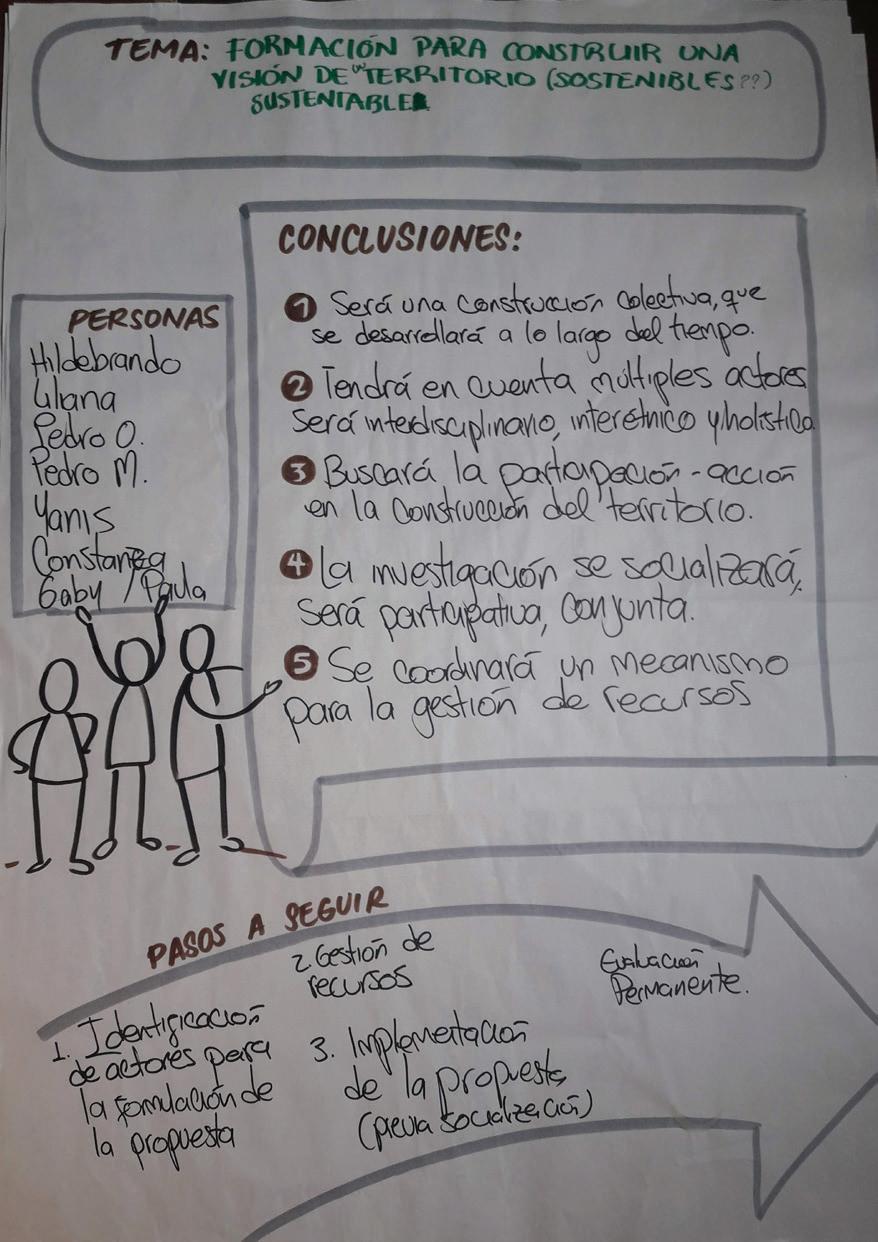 TEMA: FORMACIÓN PARA CONSTRUIR UNA
VISIÓN DE "TERRITORIO (SOSTENIBLES??)
SUSTENTABLE
CONCLUSIONES:
1 Será una construcción colectiva, que
se desarrollará a lo largo del tiempo.
2 Tendrá en cuenta múltiples actores
será interdisciplinario, interétnico y holística
3 Buscará la participación - acción
en la construcción del territorio.
4 La investigación se socializará,
será participativa, conjunta.
5 Se coordinará un mecanismo
para la gestión de recursos
PERSONAS
Hildebrando
Liliana
Pedro O.
Pedro M.
Yanis
Constanza
Gaby / Paula
PASOS A SEGUIR
1. Identificación
de actores para
la formulación de
la propuesta
2. Gestión de
recursos
3. Implementación
de la propuesta
(previa socialización)
Evaluación
Permanente.